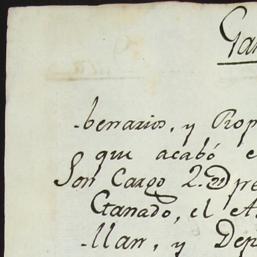 -benarios, y Prop
que acabó e
Son Cargo 2.
Ctanado, el
-llan, y Dep